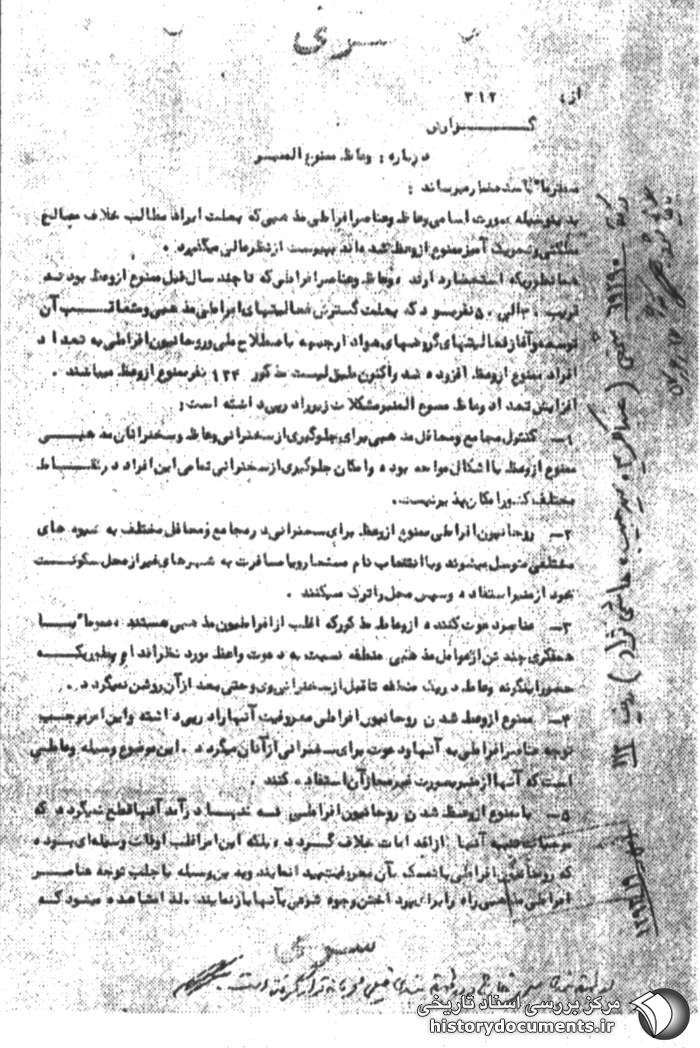 سری
از: ۳۱۲
گزارش
درباره: وعاظ ممنوع المنبر
محترما" باستحضار میرساند:
بدینوسیله صورت اسامی وعاظ وعناصر افراطی مذهبی که بعلت ایراد مطالب خلاف مصالح
مملکتی وتحریک آمیز ممنوع ازوعظ شده اند بپیوست از نظر عالی میگذرد.
همانطوریکه استحضار دارند، وعاظ وعناصر افراطی که تا چند سال قبل ممنوع ازوعظ بودند
قریب ۴۰ الی ۵۰ نفر بود که بعلت گسترش فعالیتهای افراطی مذهبی ومتعاقب آن
توسعه وآغاز فعالیتهای گروههای هوادار جبهه باصطلاح ملی وروحانیون افراطی به تعداد
افراد ممنوع ازوعظ افزوده شد واکنون طبق لیست مذکور ۱۲۴ نفر ممنوع ازوعظ میباشند.
افزایش تعداد وعاظ ممنوع المنبر مشکلات زیر را درپی داشته است:
۱- کنترل مجامع ومحافل مذهبی برای جلوگیری از سخنرانی وعاظ وسخنرانان مذهبی
ممنوع ازوعظ با اشکال مواجه بوده وامکان جلوگیری از سخنرانی تمامی این افراد در نقاط
مختلف کشور امکان پذیر نیست.
۲- روحانیون افراطی ممنوع ازوعظ برای سخنرانی در مجامع ومحافل مختلف به شیوه های
مختلفی متوسل میشوند وبا انتخاب نام مستعار ویا مسافرت به شهرهای غیر از محل سکونت
خود از منبر استفاده وسپس محل را ترک میکنند.
۳- عناصر دعوت کننده از وعاظ مذکور که اغلب از افراطیون مذهبی هستند عموما" با
همفکری چند تن از عوامل مذهبی منطقه نسبت به دعوت واعظ مورد نظر اقدام وبطوریکه
حضور اینگونه وعاظ در یک منطقه تا قبل از سخنرانی وی وحتی بعد از آن روشن نمیگردد.
۴- ممنوع ازوعظ شدن روحانیون افراطی معروفیت آنها را درپی داشته واین امر موجب
توجه عناصر افراطی به آنها ودعوت برای سخنرانی از آنان میگردد. این موضوع وسیله وعاظی
است که آنها از منبر بصورت غیر مجاز آن استفاده کنند.
۵- با ممنوع ازوعظ شدن روحانیون افراطی نه تنها درآمد آنها قطع نمیگردد که
موجبات تنبیه آنها از اقدامات خلاف گردد، بلکه این امر اغلب اوقات وسیله ای بوده
که روحانیون افراطی با تمسک بآن معروفیت پیدا نمایند وبدین وسیله با جلب توجه عناصر
افراطی مذهبی راه را برای پرداختن وجوه شرعی بآنها باز نمایند. لذا مشاهده میشود که
سری
مرکز بررسی اسناد تاریخی
historydocuments.ir